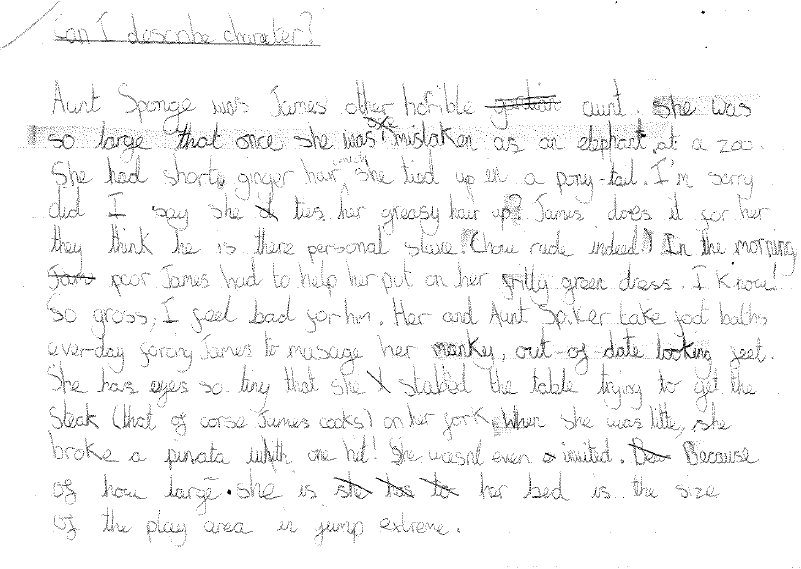 Can I describe character?
Aunt Sponge was James other horrible aunt. She was
so large that once she was mistaken as an elephant at a zoo.
She had short ginger hair which she tied up in a pony-tail. I'm sorry
did I say she ties her greasy hair up? James does it for her
they think he is there personal slave! (how rude indeed!) In the morning
poor James had to help her put on her frilly green dress. I know!
so gross, I feel bad for him. Her and Aunt Spiker take foot baths
ever-day forcing James to massage her manky, out-of-date looking feet.
She has eyes so tiny that she stabbed the table trying to get the
steak (that of corse James cooks) on her fork. When she was little, she
broke a pinata whith one hit! She wasnt even invited. Because
of how large she is her bed is the size
of the play area in jump extreme.